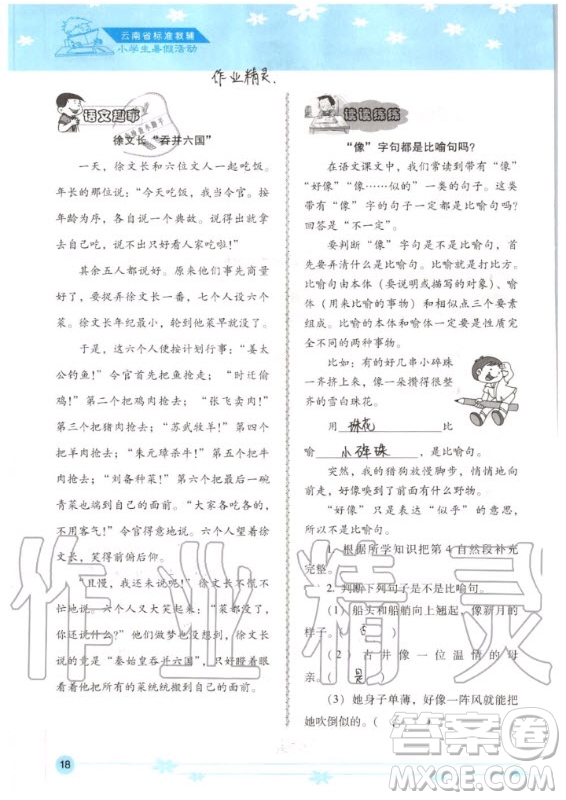 云南省标准教辅
小学生暑假活动
作业精灵.
语文趣事
徐文长“吞并六国”
一天，徐文长和六位文人一起吃饭。
年长的那位说：“今天吃饭，我当令官。按
年龄为序，各说一个典故。说得出来自
己去吃，说不出来只好看人家吃啦！”
其余五人都说好。原来他们事先商量
好了，要捉弄徐文长一番，七个人设六个
菜。徐文长年纪最小，轮到他菜早就完啦！
于是，这六个人便按计划行事：“姜太
公钓鱼！”令官首先把鱼抢走；“时迁偷
鸡！”第二个把鸡肉抢去；“张飞卖肉！”
第三个把猪肉抢走；“苏武牧羊！”第四个
把羊肉抢去；“朱元璋杀牛！”第五个把牛
肉抢去；“刘备种菜！”第六个把最后一碗
青菜也移到自己的面前。“大家各吃各的，
不用客气！”令官得意地说。六个人望着徐
文长，笑得前俯后仰。
“且慢，我还未说呢！”徐文长不慌不
忙地打断他们的笑声。“菜都没有了，你
还说什么？”六个人大笑起来。他们做梦也
没想到，徐文长说的是：“秦始皇吞并六国！”
说着，他把所有的菜统统搬到自己的面前。
读读练练
“像”字句都是比喻句吗？
在语文课文中，我们常读到带有“像”
“好像”“像……似的”一类的句子。这类
带有“像”字的句子一定都是比喻句吗？
回答是“不一定”。
要判断“像”字句是不是比喻句，首
先要弄清什么是比喻。比喻就是打比方。
比喻句由本体（要说明或描写的对象）、喻
体（用来比喻的事物）和相似点三个要素
组成。比喻的本体和喻体一定是性质完全
不同的两种事物。
比如：有的好几串小碎珠
一齐挤上来，成了一串整整齐
齐的雪白珠花。
用 珠花 比
喻 小碎珠 ，是比喻句。
突然，我的猎狗放慢脚步，悄悄地向
前走，好像嗅到了前面有什么野物。
“好像”只是表达“似乎”的意思，
所以不是比喻句。
1. 根据所学知识把第4自然段补充
完整。
2. 判断下列句子是不是比喻句。
（1）船头和船艄向上翘起，像新月的
样子。（ 是 ）
（2）古井像一位温情的母
亲。（ 是 ）
（3）她身子单薄，好像一阵风就能把
她吹倒似的。（ ）
18
作业精灵
答案圈
MXQE.COM